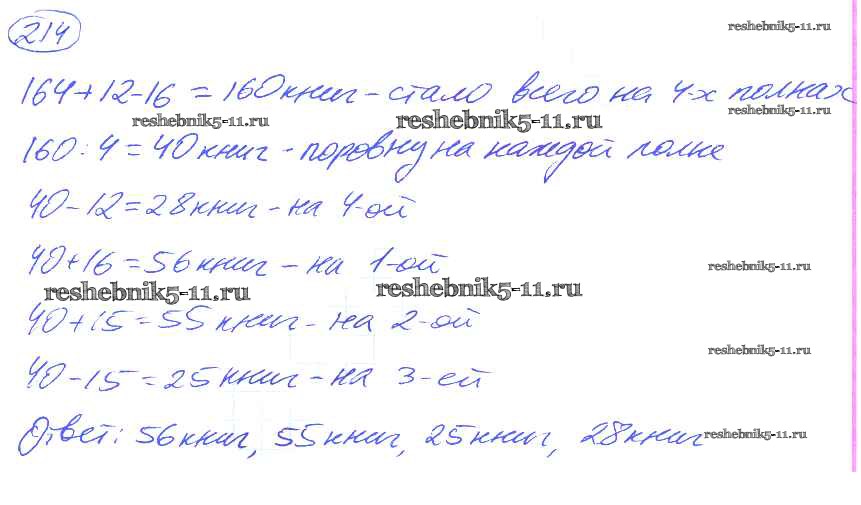 214
reshebnik5-11.ru
164+12-16 = 160 книг - стало всего на 4-х полках
reshebnik5-11.ru reshebnik5-11.ru reshebnik5-11.ru
160 : 4 = 40 книг - поровну на каждой полке
40-12=28 книг - на 4-ой
40+16 = 56 книг - на 1-ой
reshebnik5-11.ru
reshebnik5-11.ru reshebnik5-11.ru
40+15=55 книг - на 2-ой
reshebnik5-11.ru
40-15=25 книг - на 3-ей
Ответ: 56 книг, 55 книг, 25 книг, 28 книг
reshebnik5-11.ru